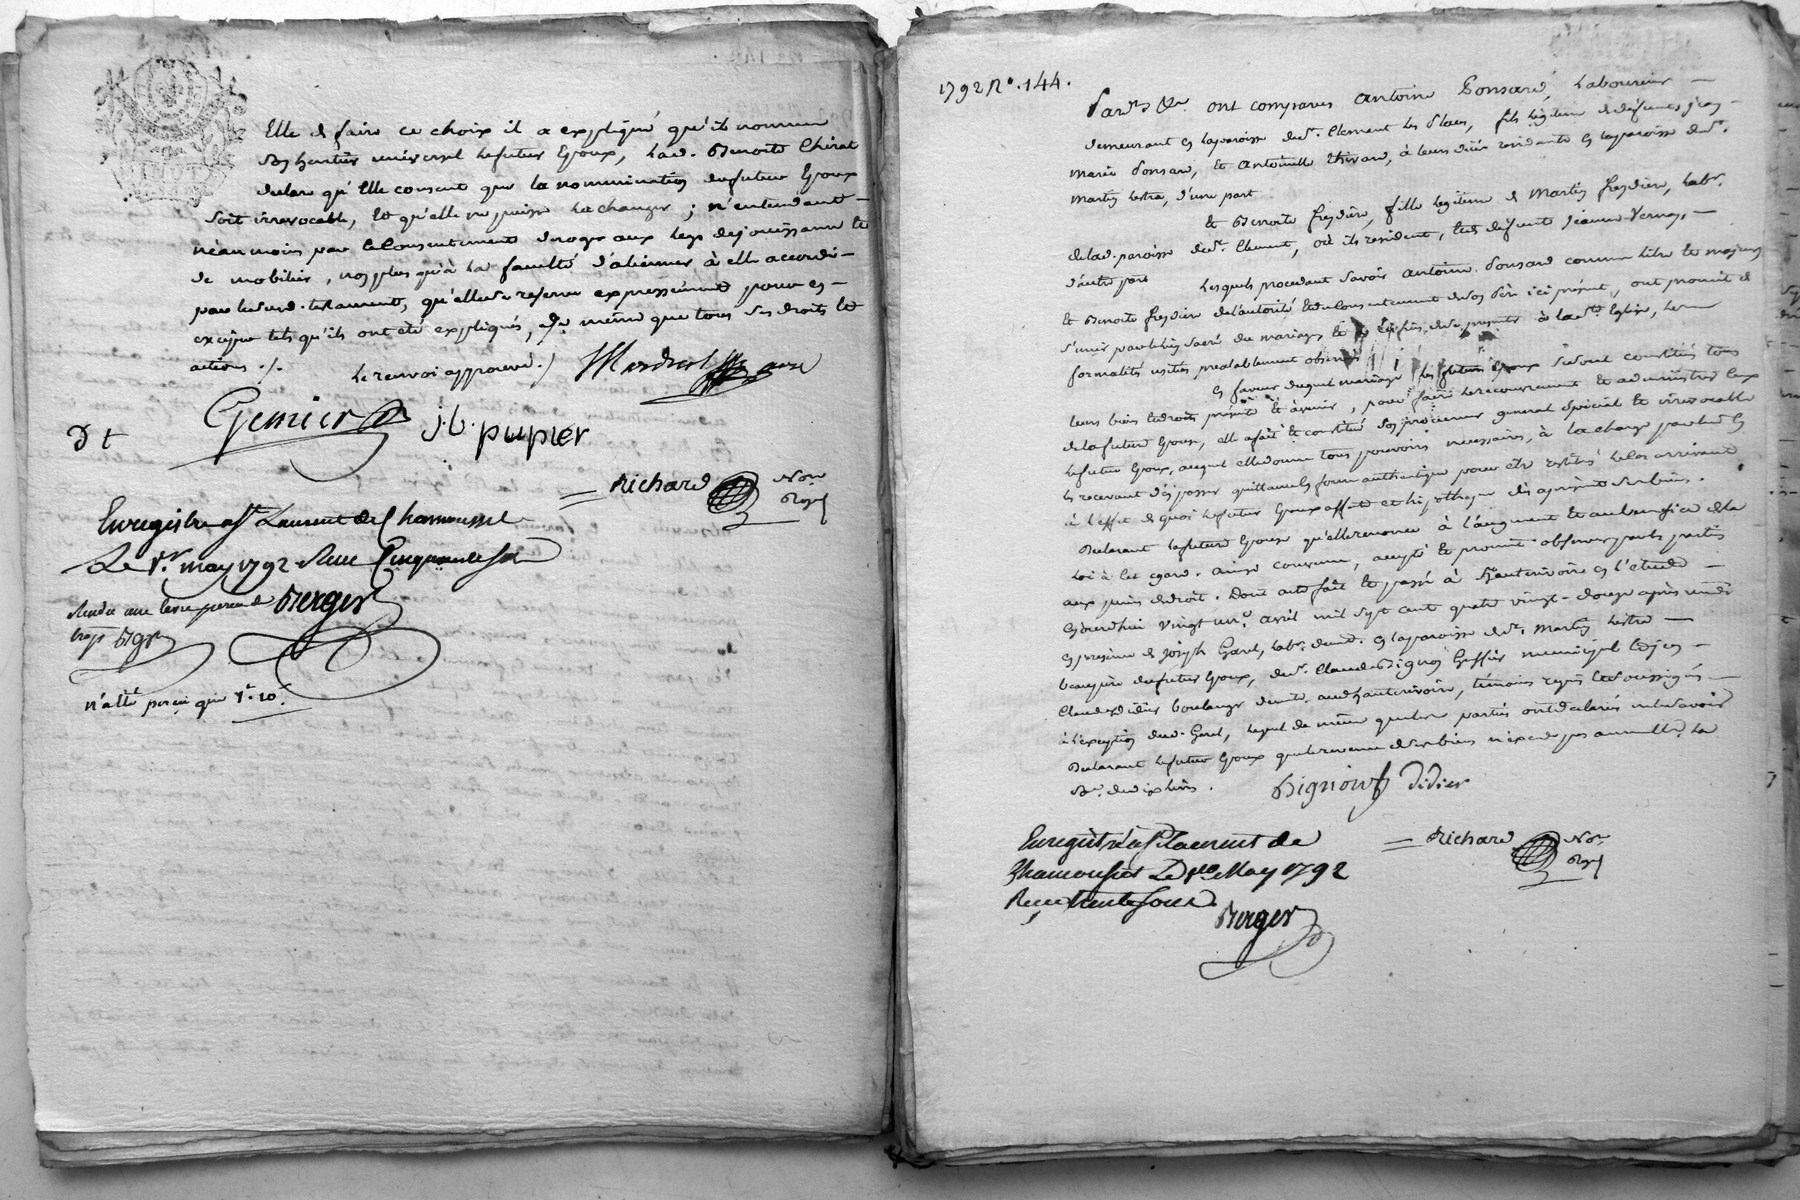 Elle de faire ce choix il a expliqué qu'il nomme
son heritier universel le futur Epoux, lad. Benoite Chirat
declare qu'Elle consent que la nomination du futur Epoux
soit irrevocable, Et qu'elle ne puisse la changer ; n'entendant
néanmoins par le Consentement deroger aux legs de jouissance et
de mobilier, non plus qu'à la faculté d'aliéner à elle accordé
par led. testament, qu'elle se reserve expressément pour en
exciper tels qu'ils ont été expliqués, de même que tous ses droits et
actions ./.
le renvoi approuvé ./
Genier
J. C. pupier
Richard
Not
Royal
Enregistré a St Laurent de Chamousset
Le 1er may 1792 Reçu Cinquante sols
Berger
n'a été perçu que
1792 N.° 144.
Pardt &c ont comparus Antoine Ponsard, laboureur
demeurant en la paroisse de St. Clement les Places, fils légitime de défunts Jean
Marie Ponsard, Et Antoinette Thivard, à leurs décès residants en la paroisse de St.
Martin lestra, d'une part
Et Benoite freydière, fille légitime de Martin freydière, labr.
de lad. paroisse de St. Clement, où ils resident, Et de défunte Jeanne Vernay,
d'autre part
Lesquels procedant savoir Antoine Ponsard comme libre et majeur
Et Benoite freydiere de l'autorité Et du Consentement de son Père ici présent, ont promit de
s'unir par le lien sacré du mariage Et de à la Ste Eglise, les
formalités usitées prealablement observées
En faveur duquel mariage les futurs Epoux se sont constitués tous
leurs biens et droits présents Et à venir, pour faire le recouvrement Et administrer ceux
de la future Epouse, elle a fait Et constitué son procureur general spécial Et irrevocable
le futur Epoux, auquel elle donne tous pouvoirs necessaires, à la charge par lui en
les recevant d'en passer quittance en forme authentique pour être restitués le cas arrivant
à l'effet de quoi le futur Epoux affecte et hipotheque dès à présent ses biens.
Declarant la future Epouse qu'elle renonce à l'augment Et au benefice de la
loi à cet egard. Ainsi convenu, accepté Et promit observer par les parties
aux peines de droit. Dont acte fait Et passé à Hauterivoire en l'étude
Cejourd'hui vingt un.e avril mil sept cent quatre vingt-douze après midi
en presence de Joseph Garel, labr. demt. en la paroisse de St. Martin lestra
beaupère du futur Epoux, de sr. Claude Bignon Greffier municipal Et de Jean
Claude Didier boulanger demt. aud. hauterivoire, témoins requis Et soussignés
à l'exception dud. Garel, lequel de même que les parties ont declarés ne le savoir
Declarant le futur Epoux que le revenu de ses biens n'excede pas annuellemt. la
Se. de dix livres.
Bignon Didier
Richard
Not
Royal
Enregistré a St Laurent de
Chamousset Le 1er May 1792
Reçu trente sous
Berger